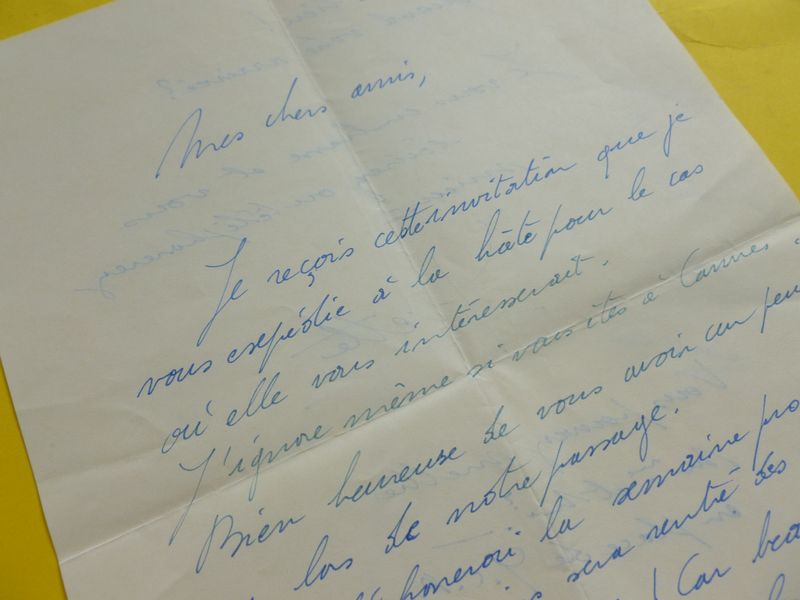 Mes chers amis,
Je reçois cette invitation que je
vous expédie à la hâte pour le cas
où elle vous intéresserait.
J'ignore même si vous êtes à Cannes
Bien heureuse de vous avoir un peu
lors de notre passage.
la semaine
sera rentré des
! Car